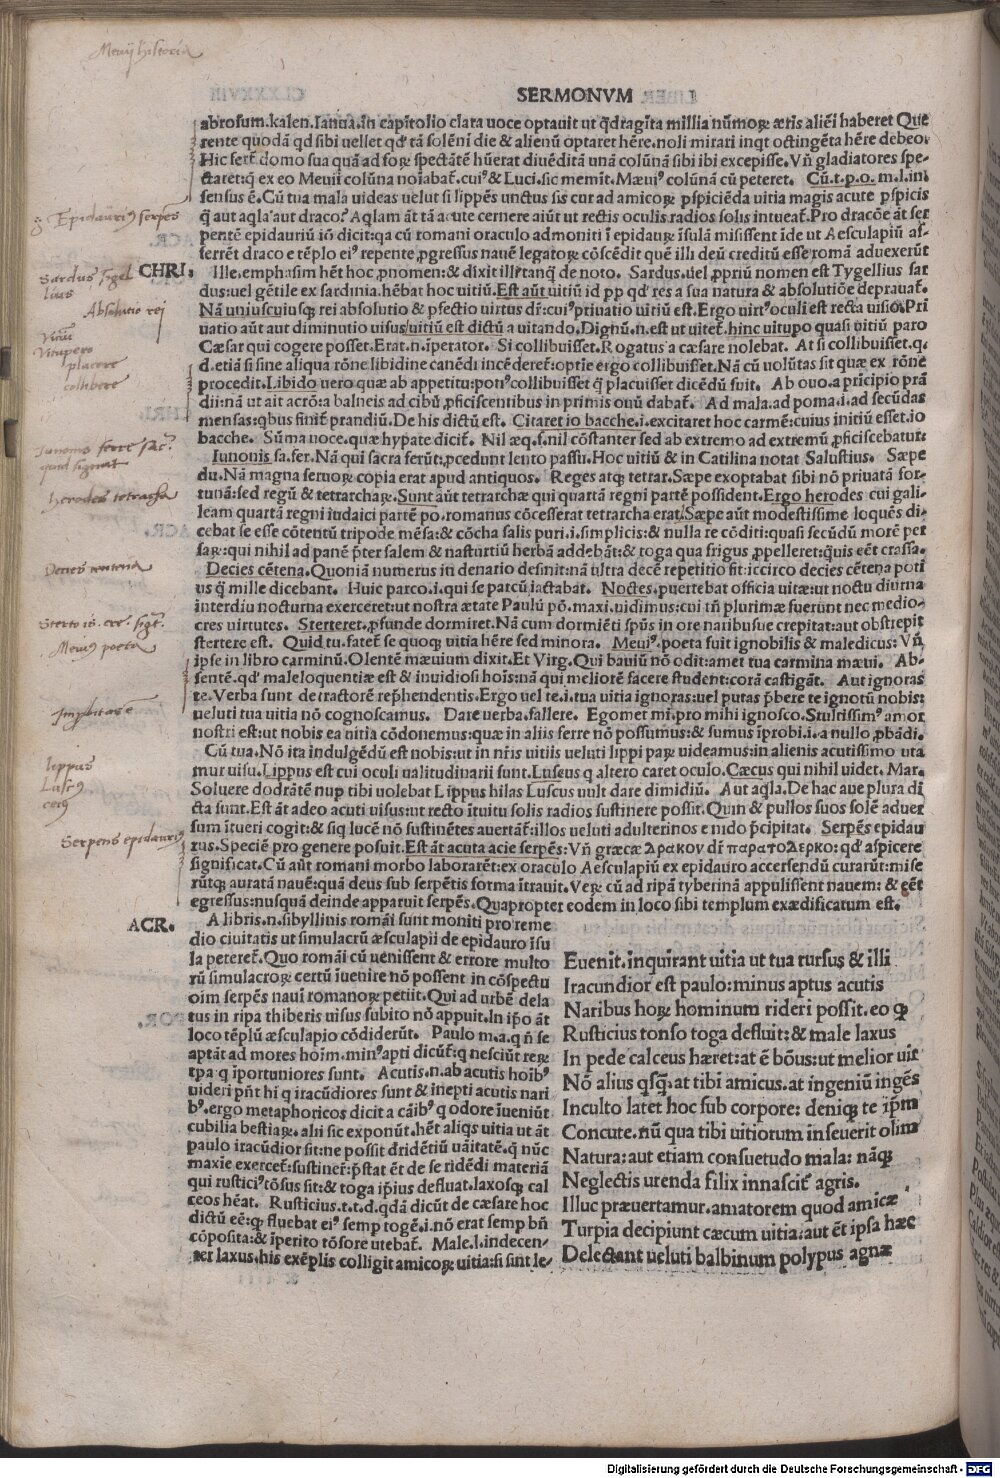 Meuij historia
SERMONVM
abrosum.kalen.Ianua.in capitolio clata uoce optauit ut q̃dragita millia nũmoꝝ æris alieni haberet Que
rente quodã qd sibi uellet qd' tã solẽni die & alienũ optaret hẽre.noli mirari inqt octingẽta hẽre debeo.
Hic fert̃ domo sua quã ad foꝝ spectãtẽ hũerat diuẽdita unã colũnã sibi ibi excepisse.Vñ gladiatores spe-
ctaret:q̃ ex eo Meuii colũna noĩabat̃.cui⁹ & Luci.sic memĩt.Mæui⁹ colũnã cũ peteret. Cũ.t.p.o.m.l.in:
sensus ẽ.Cũ tua mala uideas uelut si lippẽs unctus sis cur ad amicoꝝ pspiciẽda uitia magis acute pspicis
q̃ aut aq̃la aut draco? Aq̃lam ãt tã acute cernere aiũt ut rectis oculis radios solis intueat̃.Pro dracõe ãt ser
pentẽ epidauriũ iõ dicit:qa cũ romani oraculo admoniti ĩ epidauꝝ ĩsulã misissent ĩde ut Aesculapiũ af-
ferrẽt draco e tẽplo ei⁹ repente ꝓgressus nauẽ legatoꝝ cõscẽdit quẽ illi deũ creditũ esse romã aduexerũt
CHRI. Ille.emphasim hẽt hoc ꝓnomen:& dixit ille tanq̃ de noto. Sardus.uel ꝓpriũ nomen est Tygellius sar
dus:uel gẽtile ex sardinia.hẽbat hoc uitiũ.Est aũt uitiũ id pp qd' res a sua natura & absolutiõe deprauat̃.
Nã uniuscuiusq; rei absolutio & pfectio uirtus dr̃:cui⁹ priuatio uitiũ est.Ergo uirt⁹ oculi est recta uisio.Pri
uatio aũt aut diminutio uisus uitiũ est dictũ a uitando.Dignũ.n.est ut uitet̃.hinc uitupo quasi uitiũ paro
Cæsar qui cogere posset.Erat.n.ĩperator. Si collibuisset.Rogatus a cæsare nolebat. At si collibuisset.q.
d.etiã si sine aliqua rõne libidine canẽdi incẽderet̃:optĩe ergo collibuisset.Nã cũ uolũtas sit quæ ex rõne
procedit.Libido uero quæ ab appetitu:poti⁹ collibuisset q̃ placuisset dicẽdũ fuit. Ab ouo.a pricipio prã
dii:nã ut ait acrõ:a balneis ad cibũ ꝓficiscentibus in primis ouũ dabat̃. Ad mala.ad poma.i.ad secũdas
mensas:qbus finit̃ prandiũ.De his dictũ est. Citaret io bacche.i.excitaret hoc carmẽ:cuius initiũ esset.io
bacche. Sũma uoce.quæ hypate dicit̃. Nil æq.f.nil cõstanter sed ab extremo ad extremũ ꝓficiscebatur:
Iunonis sa.fer.Nã qui sacra ferũt:ꝓcedunt lento passu.Hoc uitiũ & in Catilina notat Salustius. Sæpe
du.Nã magna seruoꝝ copia erat apud antiquos. Reges atq; tetrar.Sæpe exoptabat sibi nõ priuatã for-
tunã:sed regũ & tetrarchaꝝ.Sunt aũt tetrarchæ qui quartã regni partẽ possident.Ergo herodes cui gali-
leam quartã regni iudaici partẽ po.romanus cõcesserat tetrarcha erat.Sæpe aũt modestissime loquẽs di-
cebat se esse cõtentũ tripode mẽsa:& cõcha salis puri.i.simplicis:& nulla re cõditi:quasi secũdũ morẽ per
saꝝ:qui nihil ad panẽ p̃ter salem & nasturtiũ herbã addebãt:& toga qua frigus ꝓpelleret:q̃uis eẽt crassa.
Decies cẽtena.Quoniã numerus in denario desinit:nã ultra decẽ repetitio fit:iccirco decies cẽtena poti
us q̃ mille dicebant. Huic parco.i.qui se parcũ iactabat. Noctes.puertebat officia uitæ:ut noctu diurna
interdiu nocturna exerceret:ut nostra ætate Paulũ põ.maxi.uidimus:cui tñ plurimæ fuerunt nec medio-
cres uirtutes. Sterteret.ꝓfunde dormiret.Nã cum dormiẽti spũs in ore naribusue crepitat:aut obstrepit
stertere est. Quid tu.fatet̃ se quoq; uitia hẽre sed minora. Meui⁹.poeta fuit ignobilis & maledicus: Vñ
ipse in libro carminũ.Olentẽ mæuium dixit.Et Virg.Qui bauiũ nõ odit:amet tua carmina mæui. Ab-
sentẽ.qd' maleloquentiæ est & inuidiosi hoĩs:nã qui meliorẽ facere student:corã castigãt. Aut ignoras
te.Verba sunt detractorẽ rep̃hendentis.Ergo uel te.i.tua uitia ignoras:uel putas p̃bere te ignotũ nobis:
ueluti tua uitia nõ cognoscamus. Dare uerba.fallere. Egomet mi.pro mihi ignosco.Stultissim⁹ amor
nostri est:ut nobis ea uitia cõdonemus:quæ in aliis ferre nõ possumus:& sumus ĩprobi.i.a nullo ꝓbãdi.
Cũ tua.Nõ ita indulgẽdũ est nobis:ut in nr̃is uitiis ueluti lippi paꝝ uideamus:in alienis acutissimo uta
mur uisu.Lippus est cui oculi ualitudinarii sunt.Luscus q altero caret oculo.Cæcus qui nihil uidet. Mar.
Soluere dodrãtẽ nup tibi uolebat Lippus hilas Luscus uult dare dimidiũ. Aut aq̃la.De hac aue plura di
cta sunt.Est ãt adeo acuti uisus:ut recto ĩtuitu solis radios sustinere possit.Quin & pullos suos solẽ aduer
sum ĩtueri cogit:& siq lucẽ nõ sustinẽtes auertãt̃:illos ueluti adulterinos e nido p̃cipitat. Serpẽs epidau
rus.Speciẽ pro genere posuit.Est ãt acuta acie serpẽs:Vñ græcæ Δρακον dr̃ παρατο Δερκο:qd' aspicere
significat.Cũ aũt romani morbo laborarẽt:ex oraculo Aesculapiũ ex epidauro accersendũ curarũt:mise
rũtq; auratã nauẽ:quã deus sub serpẽtis forma ĩtrauit.Veꝝ cũ ad ripã tyberinã appulissent nauem:& eẽt
egressus:nusquã deinde apparuit serpẽs.Quapropter eodem in loco sibi templum exædificatum est.
ACR. A libris.n.sibyllinis romãi sunt moniti pro reme
dio ciuitatis ut simulacrũ æsculapii de epidauro ĩsu
la peteret̃.Quo romãi cũ uenissent & errore multo
rũ simulacroꝝ certũ ĩuenire nõ possent in cõspectu
oim serpẽs nauĩ romanoꝝ petiit.Qui ad urbẽ dela
tus in ripa thiberis uisus subito nõ apput̃.In ip̃o ãt
loco tẽplũ æsculapio cõdiderũt. Paulo m.a.q ñ se
aptãt ad mores hoĩm.min⁹ apti dicũt̃:q nesciũt reꝝ
tpa q ĩportuniores sunt. Acutis.n.ab acutis hoĩb⁹
uideri pñt hi q iracũdiores sunt & inepti acutis nari
b⁹.ergo metaphoricos dicit a cãib⁹ q odore ĩueniũt
cubilia bestiaꝝ.alii sic exponũt.hẽt aliqs uitia ut ãt
paulo iracũdior sit:ne possit d̃ridẽtiũ uãitatẽ.q̃ nũc
maxie exercet̃:sustiner̃:p̃stat ẽt de se ridẽdi materiã
qui rustici⁹ tõsus sit:& toga ip̃ius defluat.laxosq; cal
ceos hẽat. Rusticius.t.t.d.qdã dicũt de cæsare hoc
dictũ eẽ:qꝫ fluebat ei⁹ semp togẽ.i.nõ erat semp bñ
cõposita:& ĩperito tõsore utebat̃. Male.l.indecen-
ter laxus.his exẽplis colligit amicoꝝ uitia:si sunt le-
Euenit.inquirant uitia ut tua rursus & illi
Iracundior est paulo:minus aptus acutis
Naribus hoꝝ hominum rideri possit.eo qꝫ
Rusticius tonso toga defluit:& male laxus
In pede calceus hæret:at ẽ bõus:ut melior uir
Nõ alius q̃sq̃:at tibi amicus.at ingeniũ ingẽs
Inculto latet hoc sub corpore: deniq; te ip̃m
Concute.nũ qua tibi uitiorum inseuerit olim
Natura:aut etiam consuetudo mala: nãq;
Neglectis urenda filix innascit̃ agris.
Illuc præuertamur.amatorem quod amicæ
Turpia decipiunt cæcum uitia:aut ẽt ipsa hæc
Delectant ueluti balbinum polypus agnæ
Epidauri⁹ serpẽs
Sardus tigel
lius
Absolutio rei
Vitiũ
Vitupero
placere
collibere
Iunonis ferre sac.
quid significat
herodes tetrarcha
Decies centena
Meui⁹ poeta
Improbitas ẽ
lippus
Lusc⁹
cec⁹
Serpens epidauri⁹
Digitalisierung gefördert durch die Deutsche Forschungsgemeinschaft - DFG